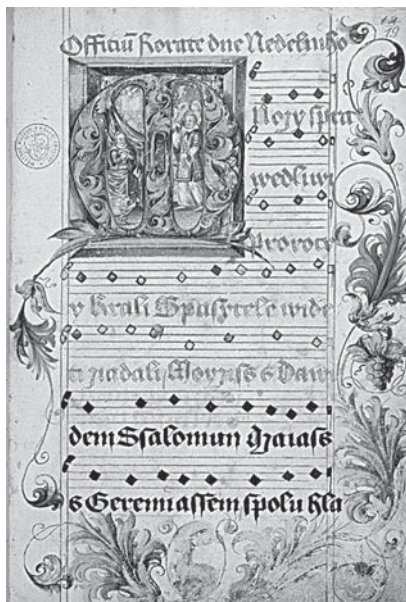 19
Officiū Rorate dne Nedelniho
Nozy spra
wedliwi
Prorocy
y Krali Spasytele wide
ti žadali Moyžiss s Dawi
dem Ssalomun Izaiass
s Geremiassem spolu hla